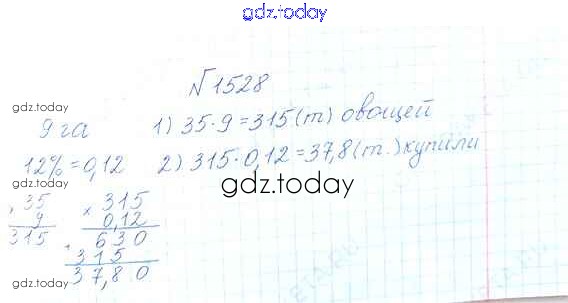 gdz.today
№1528
gdz.today
9 га 1) 35·9=315(т) овощей
12%=0,12 2) 315·0,12=37,8(т.) купили
gdz.today
× 35
9
315
× 315
0,12
630
315
37,80
gdz.today
gdz.today
gdz.today